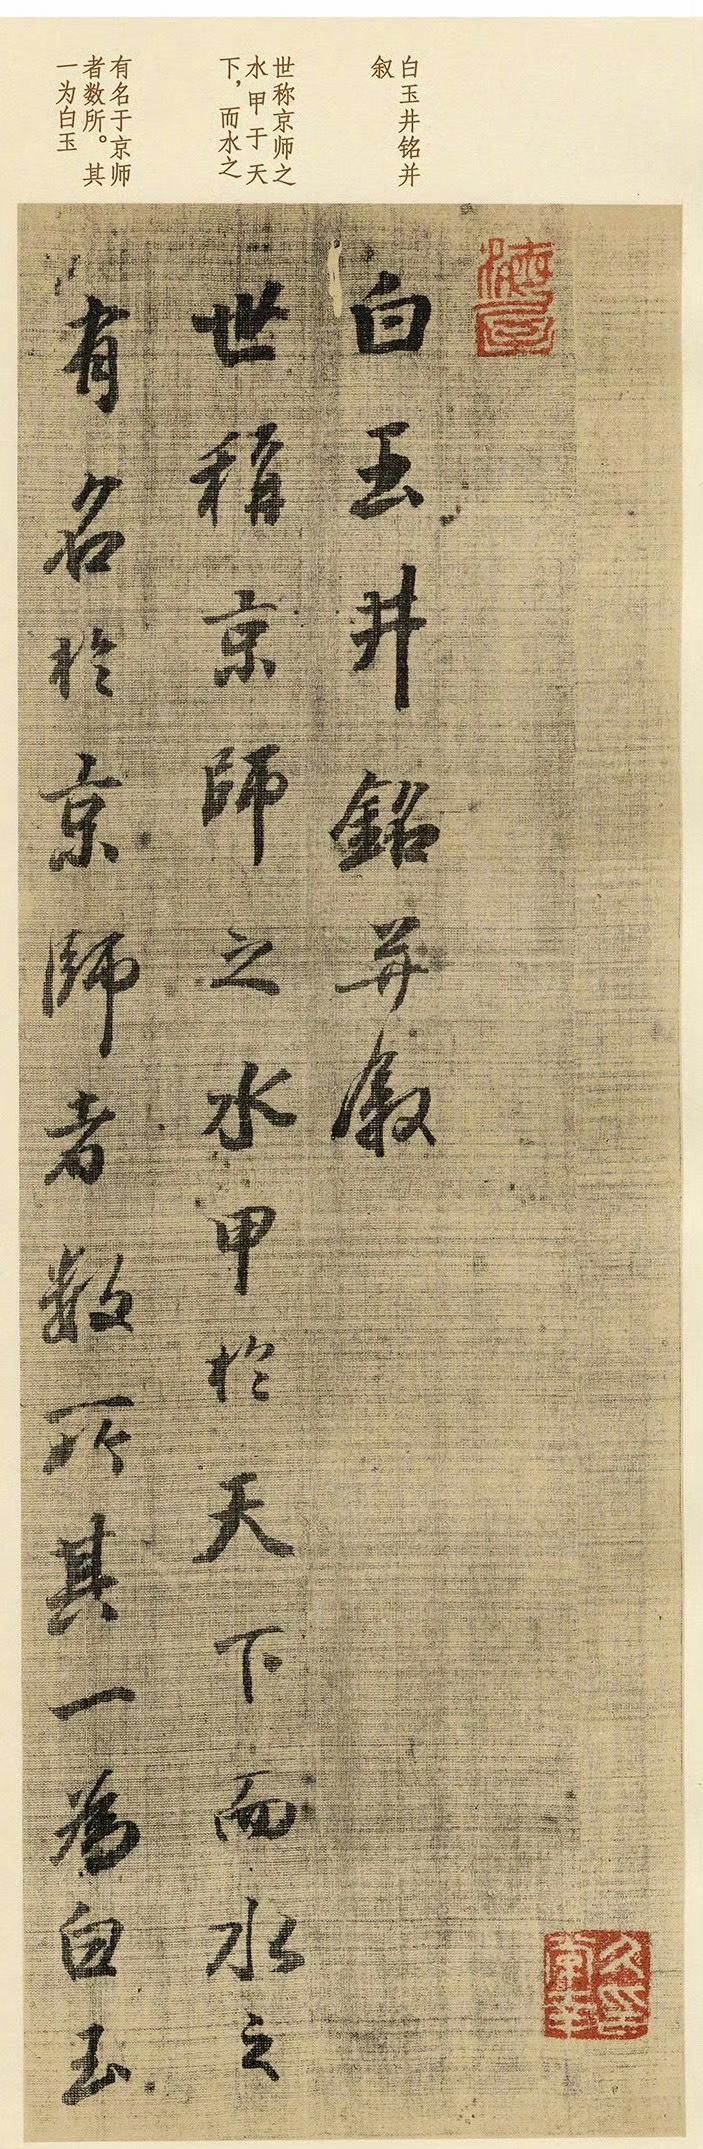 白玉井铭并
叙
世称京师之
水甲于天
下，而水之
有名于京师
者数所。其
一为白玉
白玉井銘并叙
世稱京師之水甲於天下而水之
有名於京師者數所其一為白玉